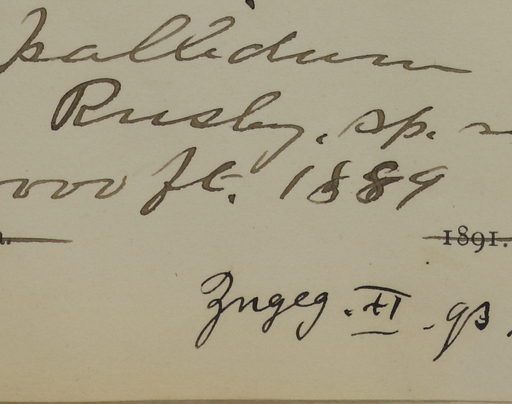 pallidum
Rusby. sp.
000 ft. 1889
1891.
Zngeg. XI. 93.